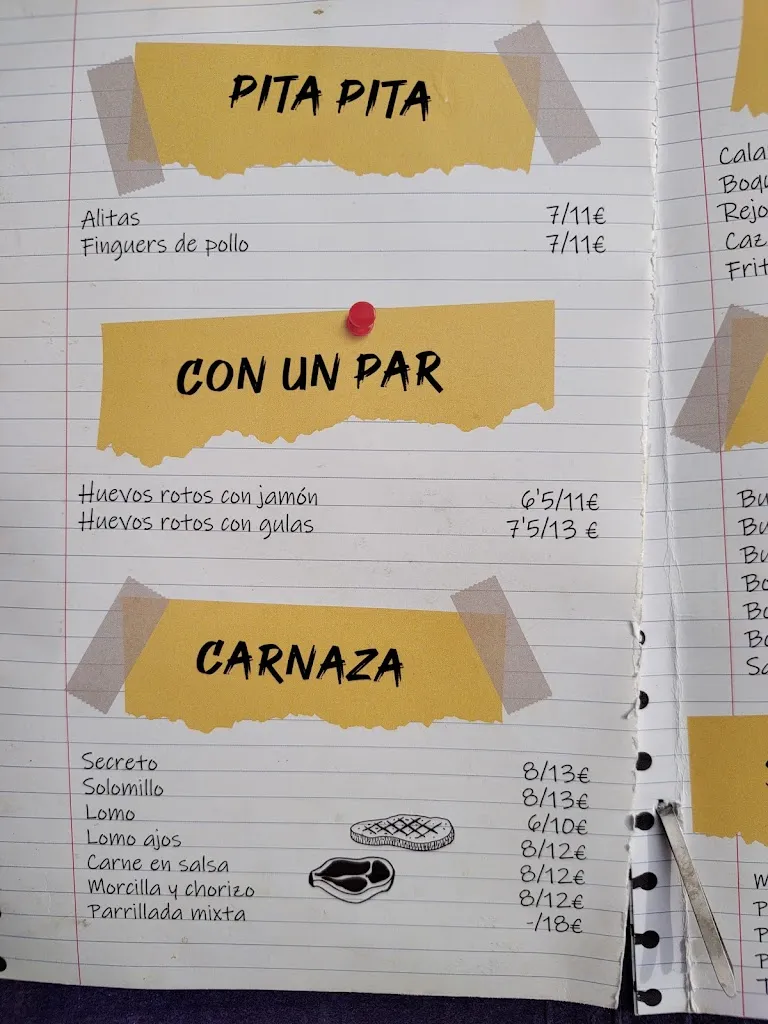 PITA PITA
Alitas 7/11€
Finguers de pollo 7/11€
CON UN PAR
Huevos rotos con jamón 6'5/11€
Huevos rotos con gulas 7'5/13 €
CARNAZA
Secreto 8/13€
Solomillo 8/13€
Lomo 6/10€
Lomo ajos 8/12€
Carne en salsa 8/12€
Morcilla y chorizo 8/12€
Parrillada mixta -/18€